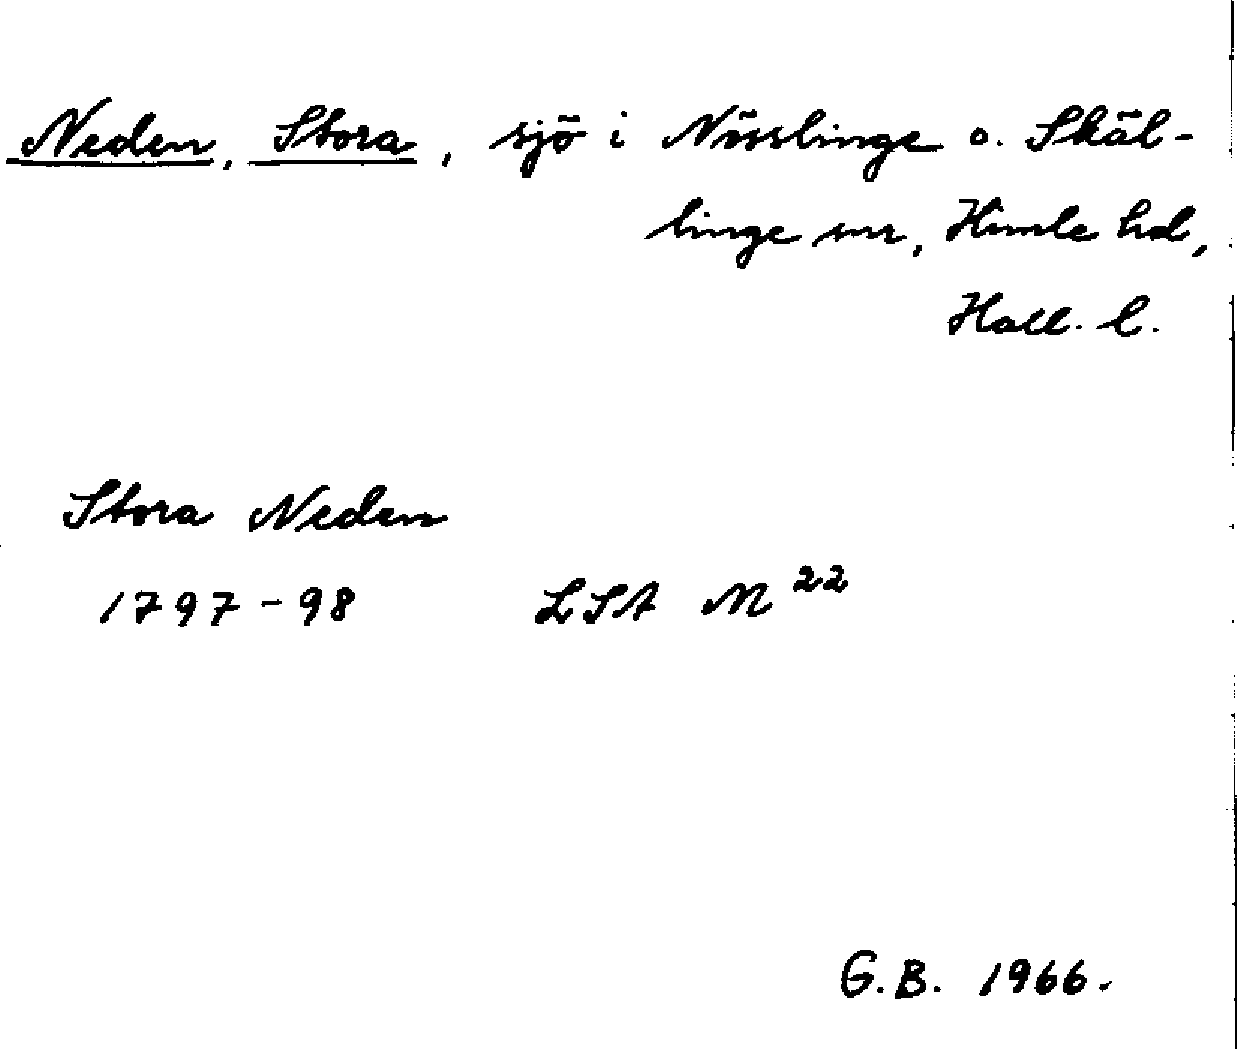 Neden, Stora, sjö i Nösslinge o. Skäl-
linge snr, Himle hd,
Hall. l.
Stora Neden
1797-98 LSA M 22
G.B. 1966.